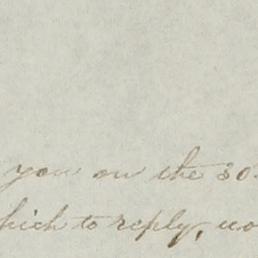 you on the 30
which to reply,